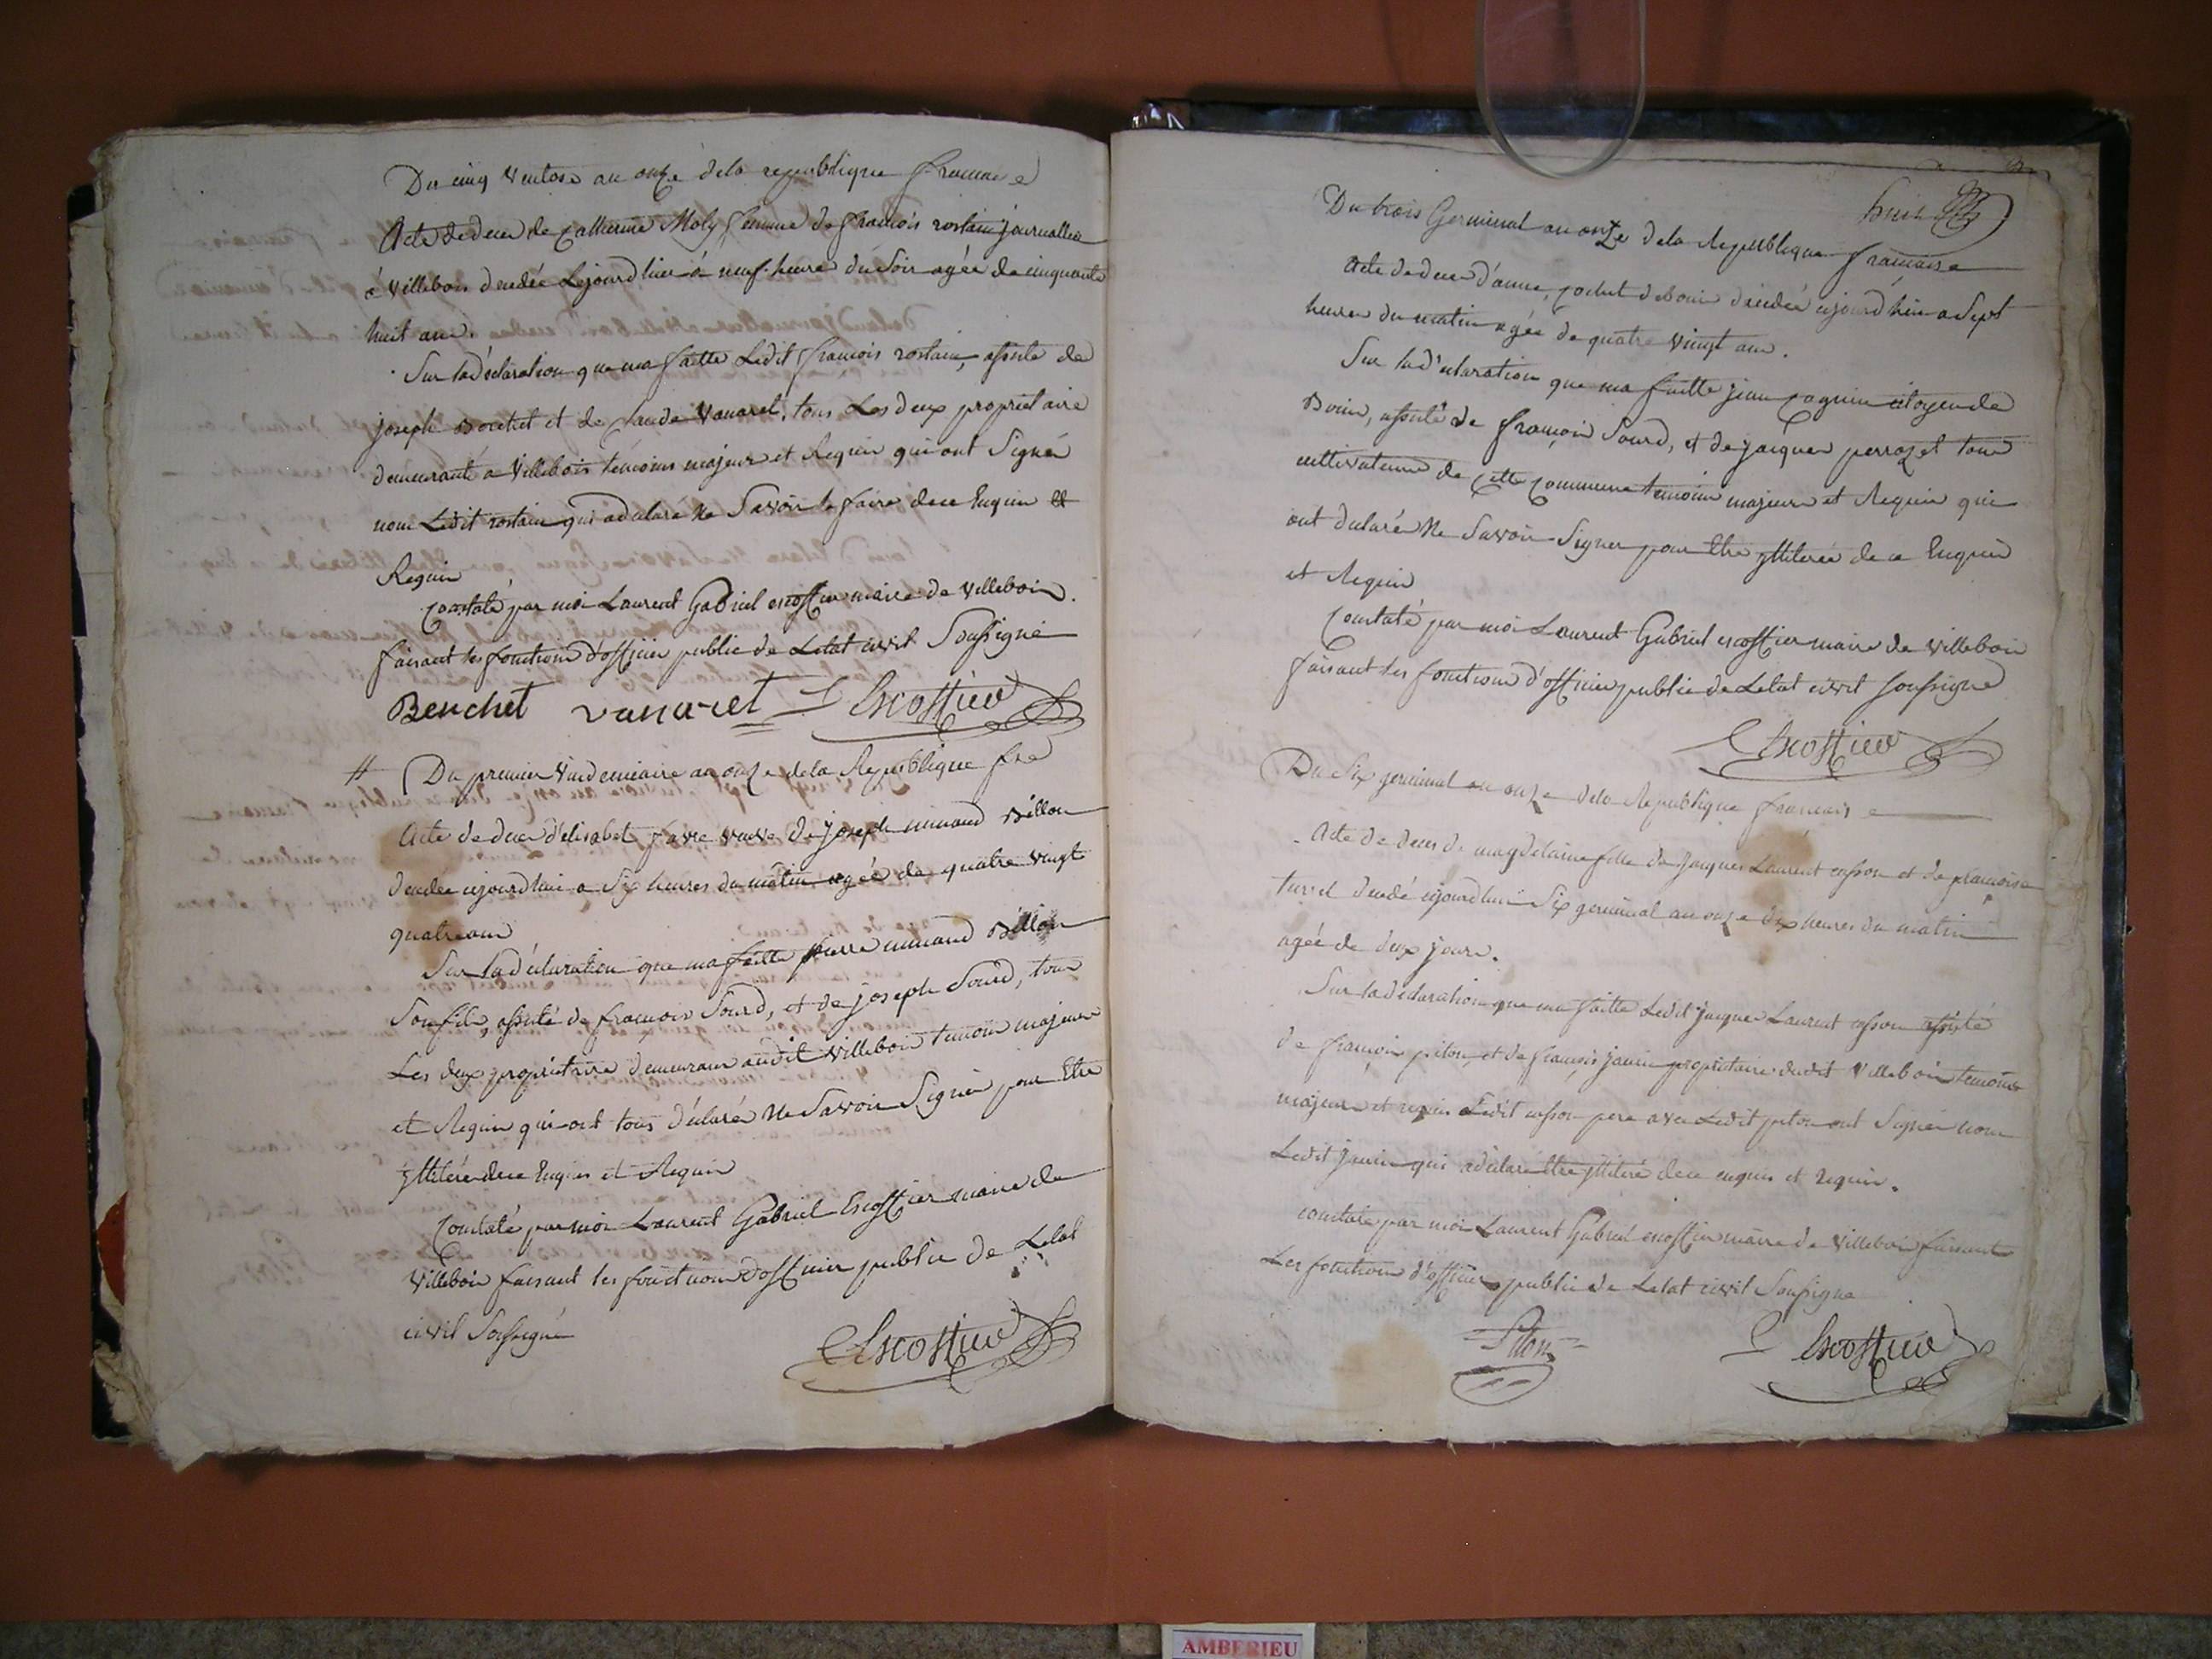 Du cinq Ventose an onze de la republique francaise
Acte de deces de Catherine Moly femme de francois rostain journallier
á Villebois décédée Lejourdhier á neuf heure du Soir agée de cinquante
huit ans.
Sur la déclaration que ma faitte Ledit francois rostain, assisté de
joseph Bouchet et de Claude Vanarel, tous Les deux propriétaire
demeurants a Villebois témoins majeur et Requis qui ont Signé
non Ledit rostain qui a déclaré Ne Savoir le faire de ce Enquis Et
Requis
Constaté par moi Laurent Gabriel escoffier maire de Villebois.
faisant les fonctions d'officier public de Letat civil Soussigné
Benchet vanarel Escoffier
# Du premier Vendemiaire an onze de la Republique fse
Acte de deces d'elisabet favre veuve de joseph minand Billon
décedée ajourdhui a Six heures du matin agée de quatre vingt
quatre ans
Sur la déclaration que ma faitte pierre minand Billon
Son fils, assisté de francois Sourd, et de joseph Sourd, tous
Les deux propriétaire demeurans audit Villebois temoins majeurs
et Requis qui ont tous déclaré Ne Savoir Signer pour Etre
Ytliteré de ce Enquis et Requis
Constaté par moi Laurent Gabriel Escoffier maire de
Villebois faisant les fonctions d'officier public de Letat
civil Soussigné
Escoffier
huit
Du trois Germinal an onze de la Republique francaise
Acte de deces d'anne pochet de Bouis décedée ajourd'hui a Sept
heures du matin agée de quatre vingt ans.
Sur la d'eclaration que ma faitte jean Cagnin citoyen de
Bouis, assisté de françois Sourd, et de jacques perrozet tous
cultivateurs de Cette Commune temoins majeurs et Requis qui
ont declaré Ne Savoir Signer pour Etre yttiterés de ce Enquis
et Requis
Constaté par moi Laurent Gabriel escoffier maire de Villebois
faisant les fonctions d'officier public de Letat civil soussigné
Escoffier
Du Six germinal an onze de la Republique francaise
Acte de deces de magdelaine fille de Jacques Laurent casson et de francoise
décedé ajourdhui Six germinal an onze dix heures du matin
agée de deux jours.
Sur la déclaration que ma faitte Ledit jacques Laurent casson assisté
de francois piton, et de francois janin propriétaire dudit Villebois temoins
majeurs et requis Ledit casson pere avec Ledit piton ont Signé non
Ledit janin qui a déclaré Etre yttiteré de ce enquis et requis.
constaté par moi Laurent Gabriel escoffier maire de Villebois faisant
Les fonctions d'officier public de Letat civil Soussigné
Piton Escoffier
AMBERIEU